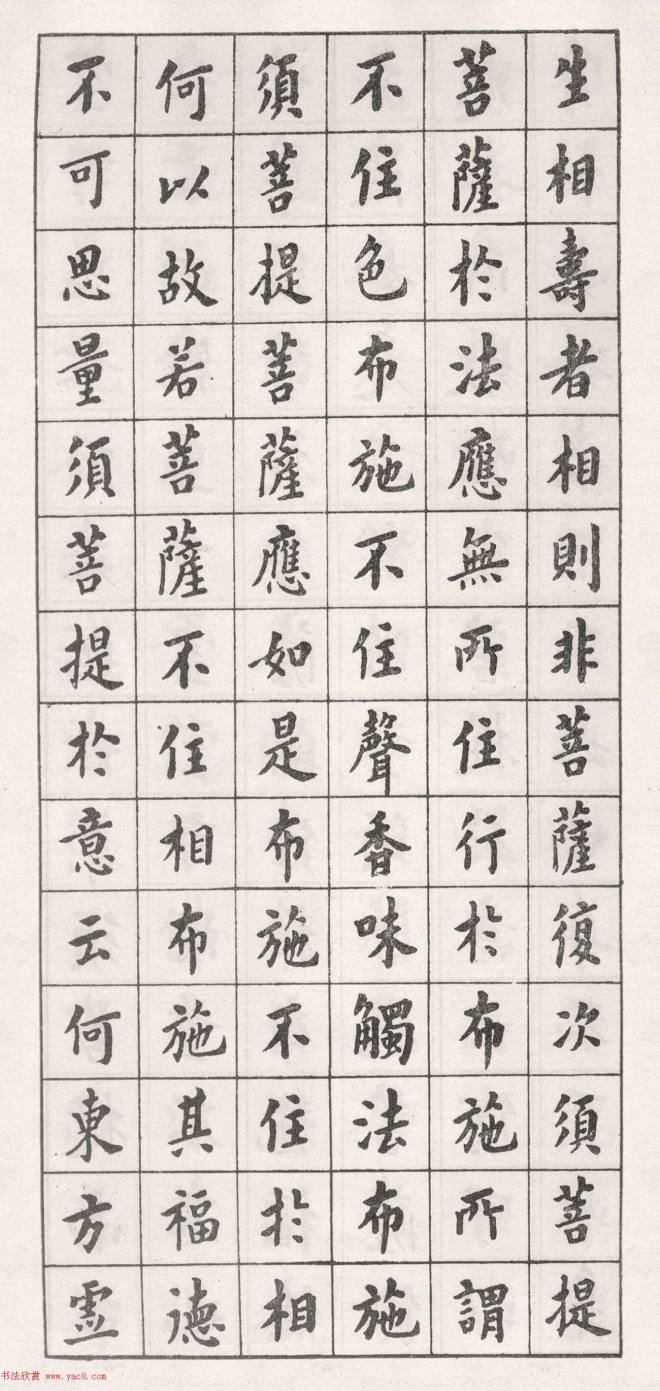 生相壽者相則非菩薩復次須菩提
菩薩於法應無所住行於布施所謂
不住色布施不住聲香味觸法布施
須菩提菩薩應如是布施不住於相
何以故若菩薩不住相布施其福德
不可思量須菩提於意云何東方虛
书法欣赏 www.yac8.com